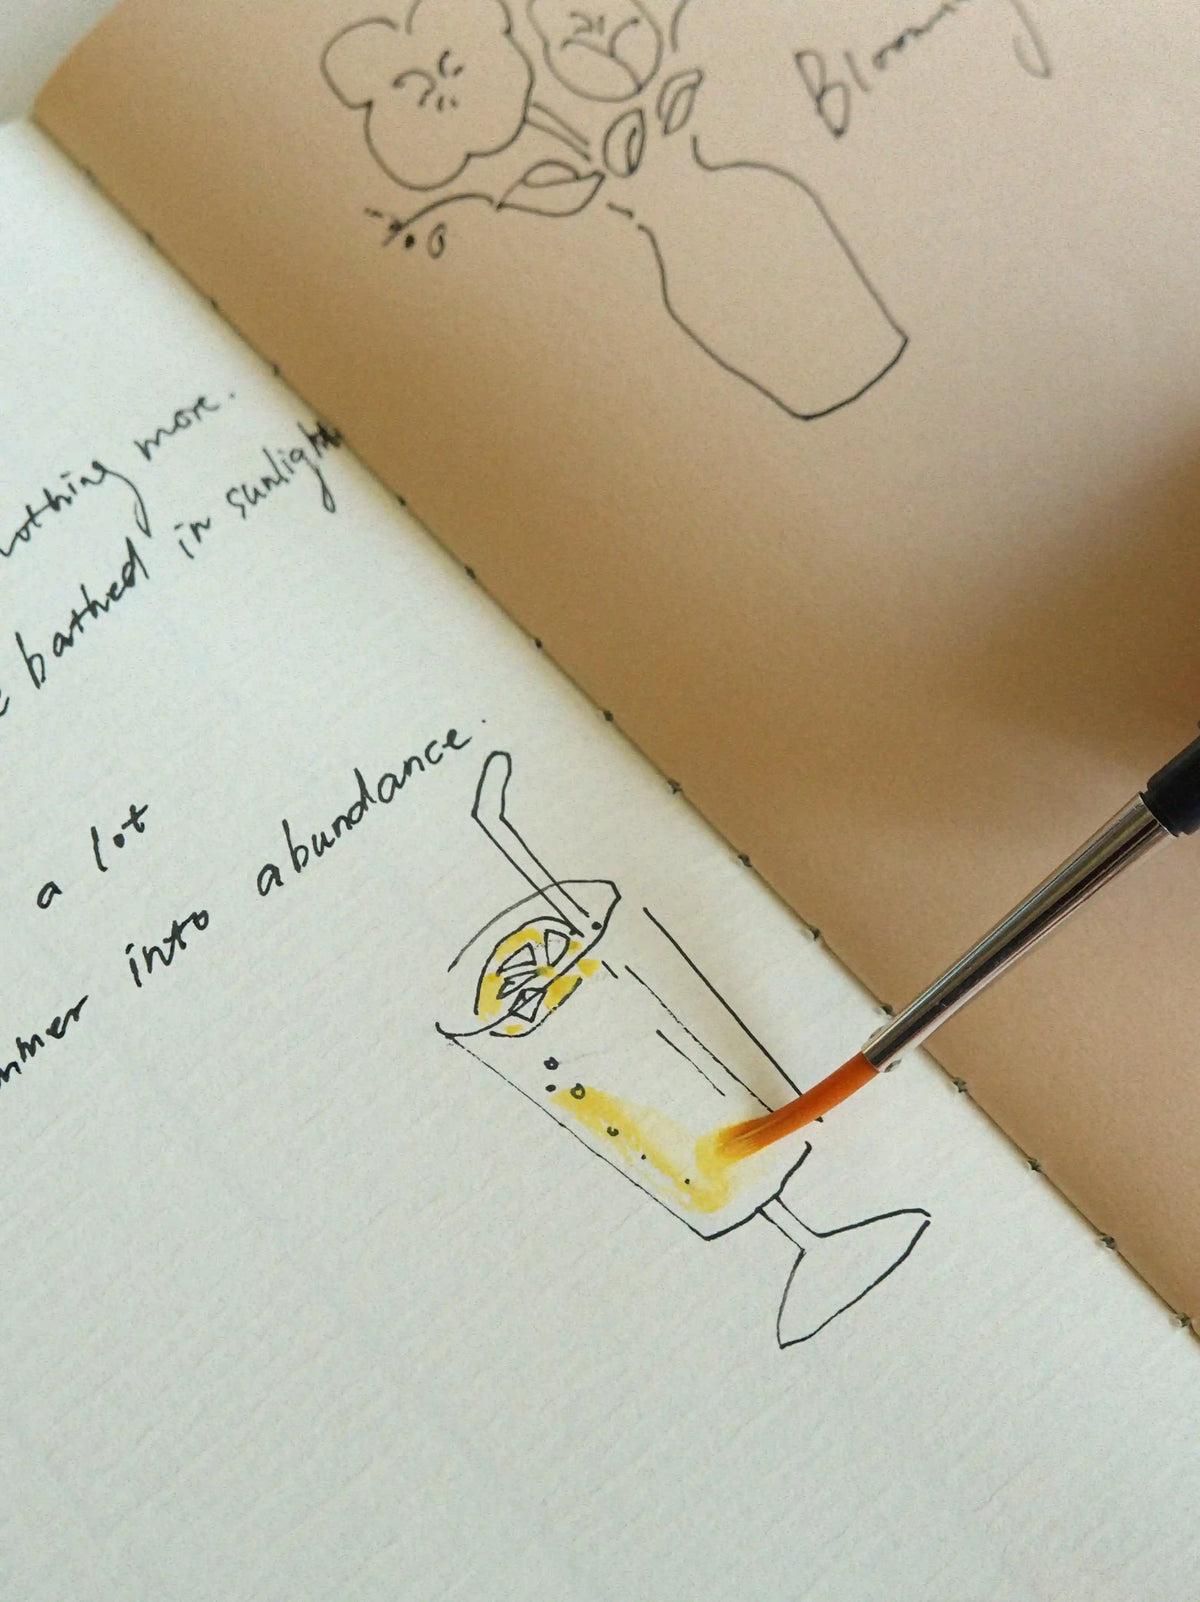 nothing more.
bathed in sunlight
a lot
into abundance.